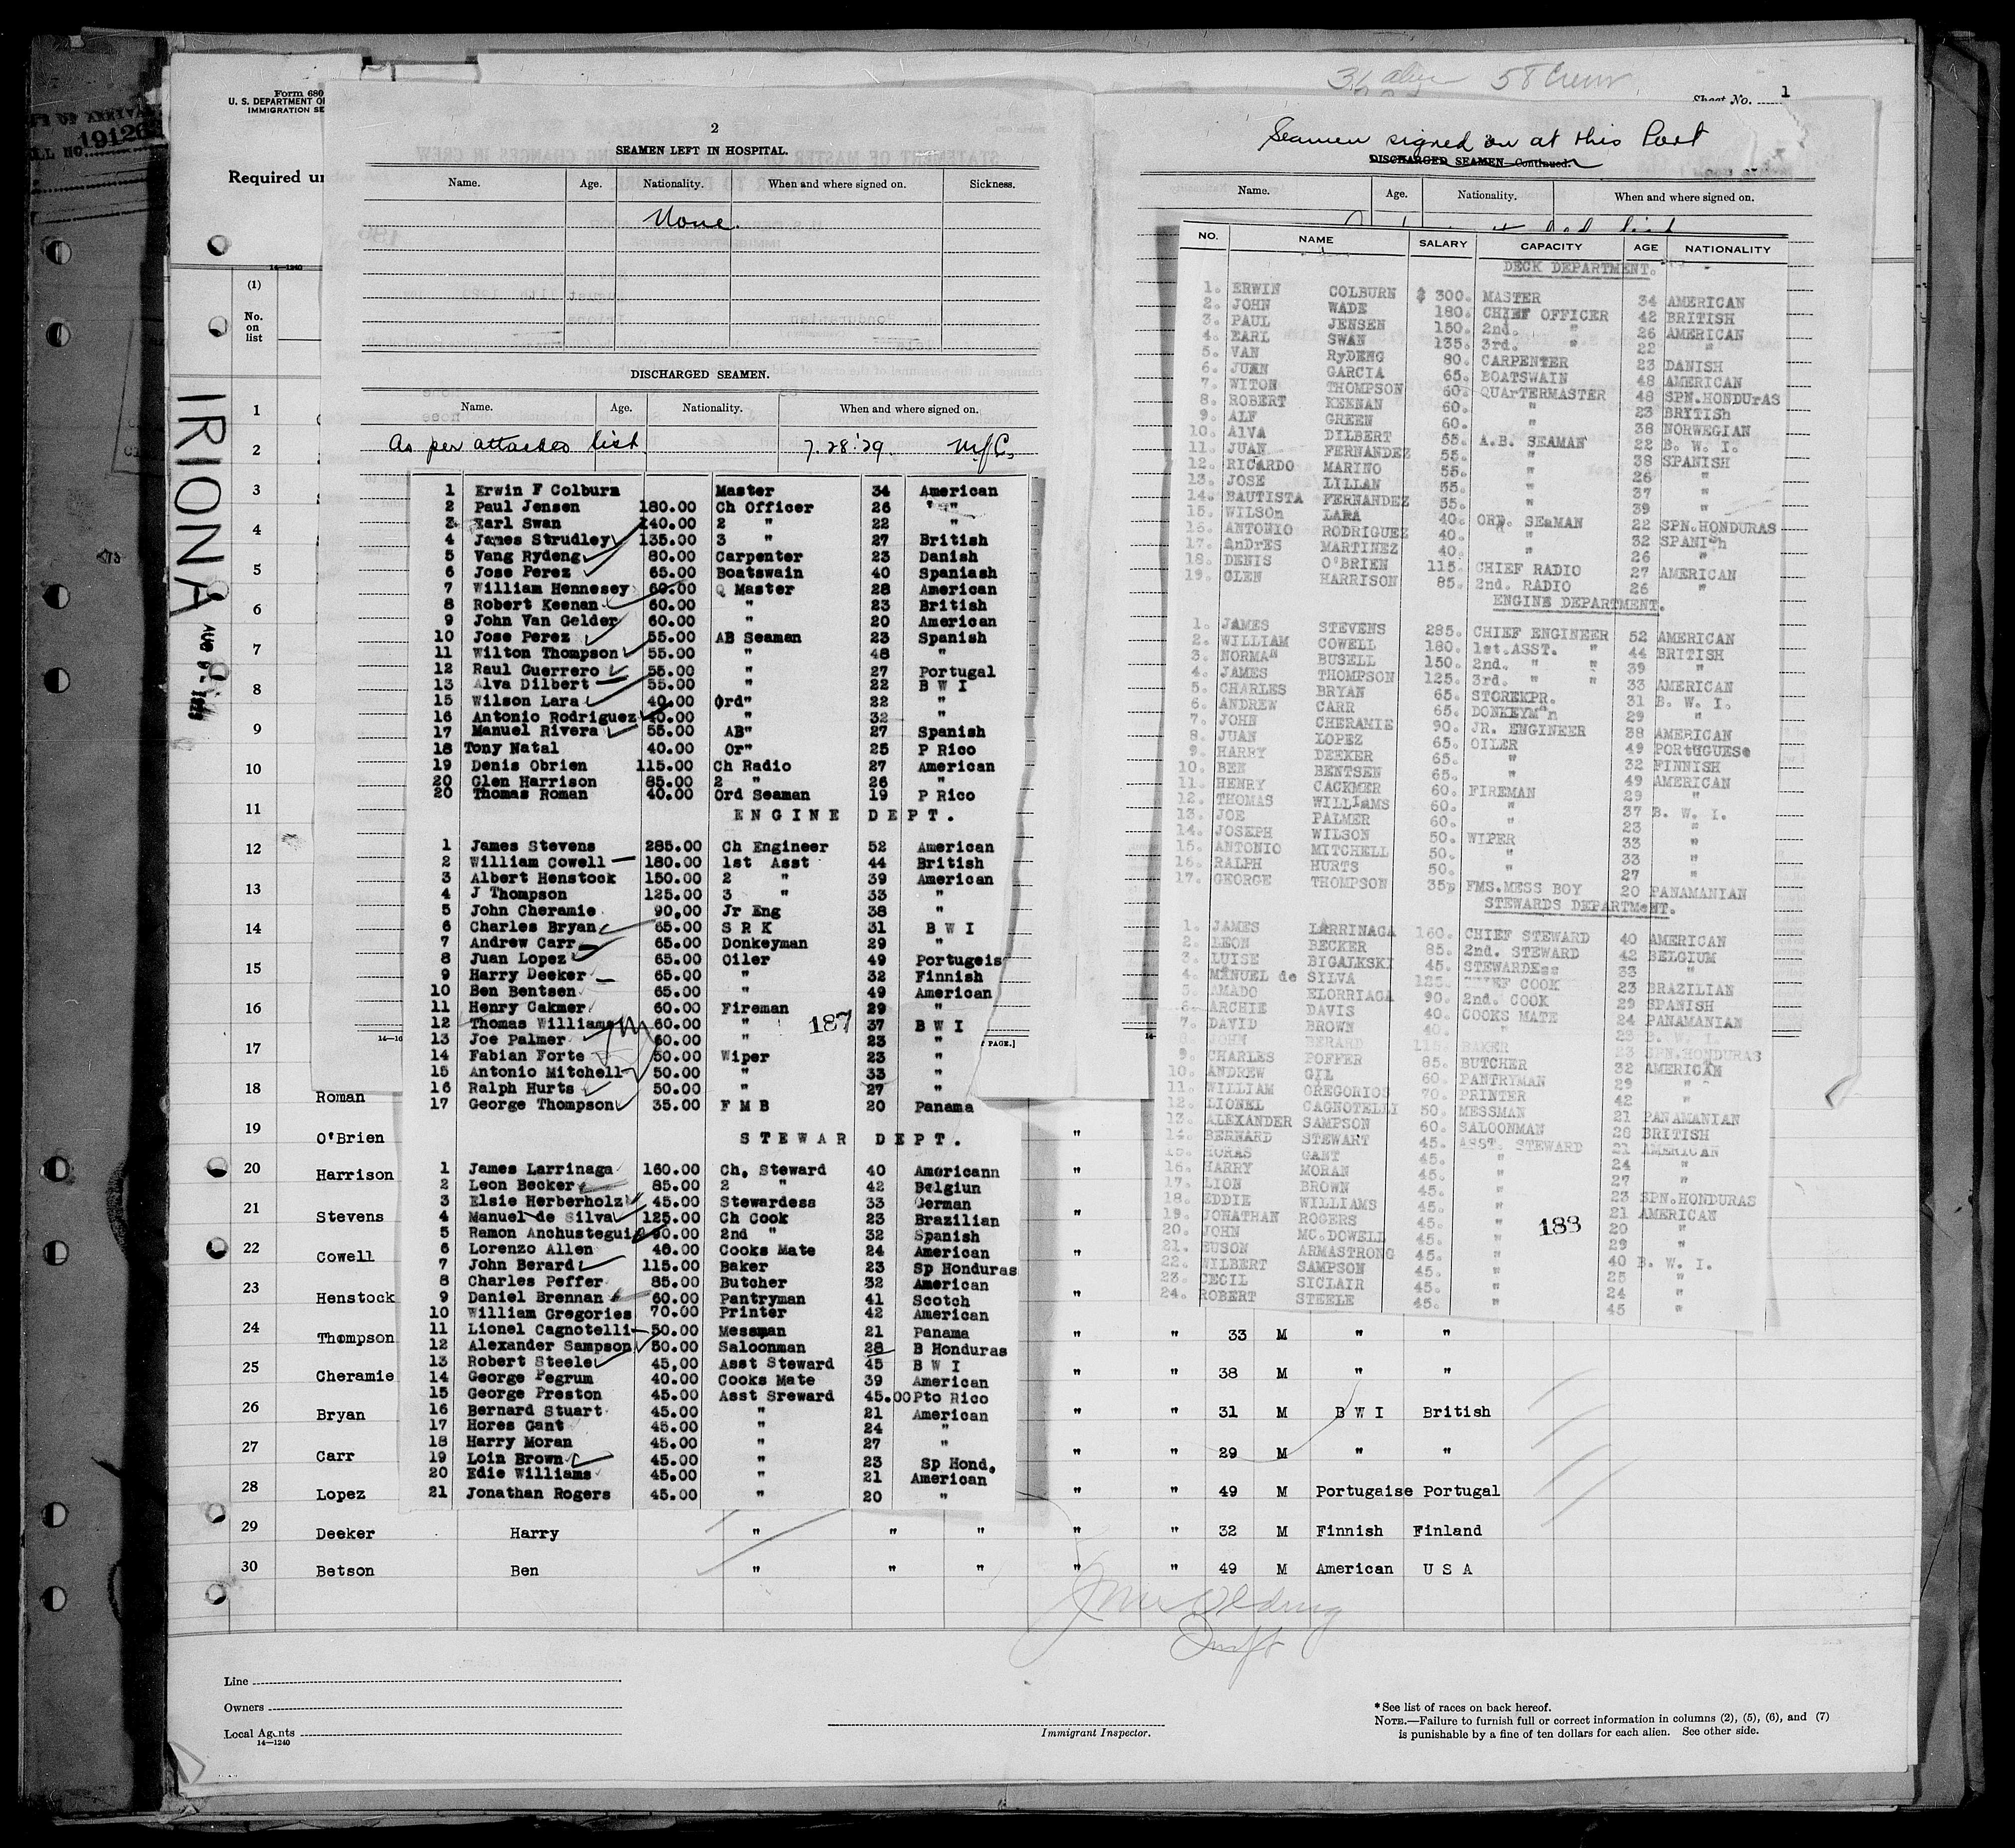 36 alien 58 Crew
Sheet No. 1
Form 680
U. S. DEPARTMENT OF
IMMIGRATION SE
191263
Required un
14—1240
(1)
No.
on
list
IRIONA
1
2
3
4
5
6
7
8
9
10
11
12
13
14
15
16
17
18 Roman
19 O'Brien
20 Harrison
21 Stevens
22 Cowell
23 Henstock
24 Thompson " " 33 M " "
25 Cheramie " " 38 M " "
26 Bryan " " 31 M B W I British
27 Carr " " 29 M " "
28 Lopez " " 49 M Portugaise Portugal
29 Deeker Harry " " " " " 32 M Finnish Finland
30 Betson Ben " " " " " 49 M American U S A
2
SEAMEN LEFT IN HOSPITAL.
Name. Age. Nationality. When and where signed on. Sickness.
None.
DISCHARGED SEAMEN.
Name. Age. Nationality. When and where signed on.
As per attached list 7.28.'29. MJC.
1 Erwin F Colburn Master 34 American
2 Paul Jensen 180.00 Ch Officer 26 " "
3 Earl Swan 140.00 2 " 22 "
4 James Strudley 135.00 3 " 27 British
5 Vang Rydeng 80.00 Carpenter 23 Danish
6 Jose Perez 65.00 Boatswain 40 Spaniash
7 William Hennesey 60.00 Q Master 28 American
8 Robert Keenan 60.00 " 23 British
9 John Van Gelder 60.00 " 20 American
10 Jose Perez 55.00 AB Seaman 23 Spanish
11 Wilton Thompson 55.00 " 48 "
12 Raul Guerrero 55.00 " 27 Portugal
13 Alva Dilbert 55.00 " 22 B W I
15 Wilson Lara 40.00 Ord" 22 "
16 Antonio Rodriguez 40.00 " 32 "
17 Manuel Rivera 55.00 AB" 27 Spanish
18 Tony Natal 40.00 Or" 25 P Rico
19 Denis Obrien 115.00 Ch Radio 27 American
20 Glen Harrison 85.00 2 " 26 "
20 Thomas Roman 40.00 Ord Seaman 19 P Rico
ENGINE DEPT.
1 James Stevens 285.00 Ch Engineer 52 American
2 William Cowell 180.00 1st Asst 44 British
3 Albert Henstock 150.00 2 " 39 American
4 J Thompson 125.00 3 " 33 "
5 John Cheramie 90.00 Jr Eng 38 "
6 Charles Bryan 65.00 S R K 31 B W I
7 Andrew Carr 65.00 Donkeyman 29 "
8 Juan Lopez 65.00 Oiler 49 Portugeis
9 Harry Deeker 65.00 " 32 Finnish
10 Ben Bentsen 65.00 " 49 American
11 Henry Cakmer 60.00 Fireman 29 "
12 Thomas Williams 60.00 " 187 37 B W I
13 Joe Palmer 60.00 " 23 "
14 Fabian Forte 50.00 Wiper 23 "
15 Antonio Mitchell 50.00 " 33 "
16 Ralph Hurts 50.00 " 27 "
17 George Thompson 35.00 F M B 20 Panama
STEWAR DEPT.
1 James Larrinaga 160.00 Ch. Steward 40 Americann
2 Leon Becker 85.00 2 " 42 Belgiun
3 Elsie Herberholz 45.00 Stewardess 33 German
4 Manuel de Silva 125.00 Ch Cook 23 Brazilian
5 Ramon Anchustegui 90.00 2nd " 32 Spanish
6 Lorenzo Allen 40.00 Cooks Mate 24 American
7 John Berard 115.00 Baker 23 Sp Honduras
8 Charles Peffer 85.00 Butcher 32 American
9 Daniel Brennan 60.00 Pantryman 41 Scotch
10 William Gregories 70.00 Printer 42 American
11 Lionel Cagnotelli 50.00 Messman 21 Panama
12 Alexander Sampson 50.00 Saloonman 28 B Honduras
13 Robert Steele 45.00 Asst Steward 45 B W I
14 George Pegrum 40.00 Cooks Mate 39 American
15 George Preston 45.00 Asst Sreward 45.00 Pto Rico
16 Bernard Stuart 45.00 " 21 American
17 Hores Gant 45.00 " 24 "
18 Harry Moran 45.00 " 27 "
19 Loin Brown 45.00 " 23 Sp Hond.
20 Edie Williams 45.00 " 21 American
21 Jonathan Rogers 45.00 " 20 "
PAGE.]
Seamen signed on at this Port
3
DISCHARGED SEAMEN—Continued.
Name. Age. Nationality. When and where signed on.
NO. NAME SALARY CAPACITY AGE NATIONALITY
DECK DEPARTMENT.
1. ERWIN COLBURN $ 300. MASTER 34 AMERICAN
2. JOHN WADE 180. CHIEF OFFICER 42 BRITISH
3. PAUL JENSEN 150. 2nd. " 26 AMERICAN
4. EARL SWAN 135. 3rd. " 22 "
5. VAN RyDENG 80. CARPENTER 23 DANISH
6. JUAN GARCIA 65. BOATSWAIN 48 AMERICAN
7. WITON THOMPSON 60. QUArTERMASTER 48 SPN.HONDUrAS
8. ROBERT KEENAN 60. " 23 BRITISh
9. ALF GREEN 60. " 38 NORWEGIAN
10. AlVA DILBERT 55. A.B. SEAMAN 22 B. W. I.
11. JUAN FERNANDEZ 55. " 38 SPANISH
12. RICARDO MARINO 55. " 26 "
13. JOSE LILLAN 55. " 37 "
14. BAUTISTA FERNANDEZ 55. " 39 "
15. WILSOn LARA 40. ORD. SEaMAN 22 SPN.HONDURAS
16. ANTONIO RODRIGUEZ 40. " 32 SPANISh
17. AnDrES MARTINEZ 40. " 26 "
18. DENIS O'BRIEN 115. CHIEF RADIO 27 AMERICAN
19. GLEN HARRISON 85. 2nd. RADIO 26 "
ENGINE DEPARTMENT.
1. JAMES STEVENS 285. CHIEF ENGINEER 52 AMERICAN
2. WILLIAM COWELL 180. 1st.ASST. " 44 BRITISH
3. NORMAN BUSELL 150. 2nd. " " 39 "
4. JAMES THOMPSON 125. 3rd. " " 33 AMERICAN
5. CHARLES BRYAN 65. STOREKPR. 31 B. W. I.
6. ANDREW CARR 65. DONKEYMan 29 "
7. JOHN CHERAMIE 90. JR. ENGINEER 38 AMERICAN
8. JUAN LOPEZ 65. OILER 49 PORtUGUESe
9. HARRY DEEKER 65. " 32 FINNISH
10. BEN BENTSEN 65. " 49 AMERICAN
11. HENRY CACKMER 60. FIREMAN 29 "
12. THOMAS WILLIAMS 60. " 37 B. W. I.
13. JOE PALMER 60. " 23 "
14. JOSEPH WILSON 50. WIPER 33 "
15. ANTONIO MITCHELL 50. " 33 "
16. RALPH HURTS 50. " 27 "
17. GEORGE THOMPSON 35. FMS.MESS BOY 20 PANAMANIAN
STEWARDS DEPARTMeNT.
1. JAMES LARRINAGA 160. CHIEF STEWARD 40 AMERICAN
2. LEON BECKER 85. 2nd. STEWARD 42 BELGIUM
3. LUISE BIGALKSKI 45. STEWARDEss 33 "
4. MANUEL de SILVA 125. CHIEF COOK 23 BRAZILIAN
5. AMADO ELORRIAGA 90. 2nd. COOK 29 SPANISH
6. ARCHIE DAVIS 40. COOKS MATE 24 PANAMANIAN
7. DAVID BROWN 40. " 23 B. W. I.
8. JOHN BERARD 115. BAKER 23 SPN.HONDURAS
9. CHARLES POFFER 85. BUTCHER 32 AMERICAN
10. ANDREW GIL 60. PANTRYMAN 29 "
11. WILLIAM GREGORIOS 70. PRINTER 42 "
12. LIONEL CAGNOTELLY 50. MESSMAN 21 PANAMANIAN
13. ALEXANDER SAMPSON 60. SALOONMAN 28 BRITISH
14. BERNARD STEWART 45. ASST. STEWARD 21 AMERICAN
15. HORAS GANT 45. " 24 "
16. HARRY MORAN 45. " 27 "
17. LION BROWN 45. " 23 SPN.HONDURAS
18. EDDIE WILLIAMS 45. " 21 AMERICAN
19. JONATHAN ROGERS 45. " 188 20 "
20. JOHN MC.DOWELL 45. " 29 "
21. EUSON ARMSTRONG 45. " 40 B. W. I.
22. WILBERT SAMPSON 45. " 25 "
23. CECIL SICLAIR 45. " 24 "
24. ROBERT STEELE 45. " 45 "
Line
Owners
Local Agents
14—1240
Immigrant Inspector.
*See list of races on back hereof.
NOTE.—Failure to furnish full or correct information in columns (2), (5), (6), and (7)
is punishable by a fine of ten dollars for each alien. See other side.